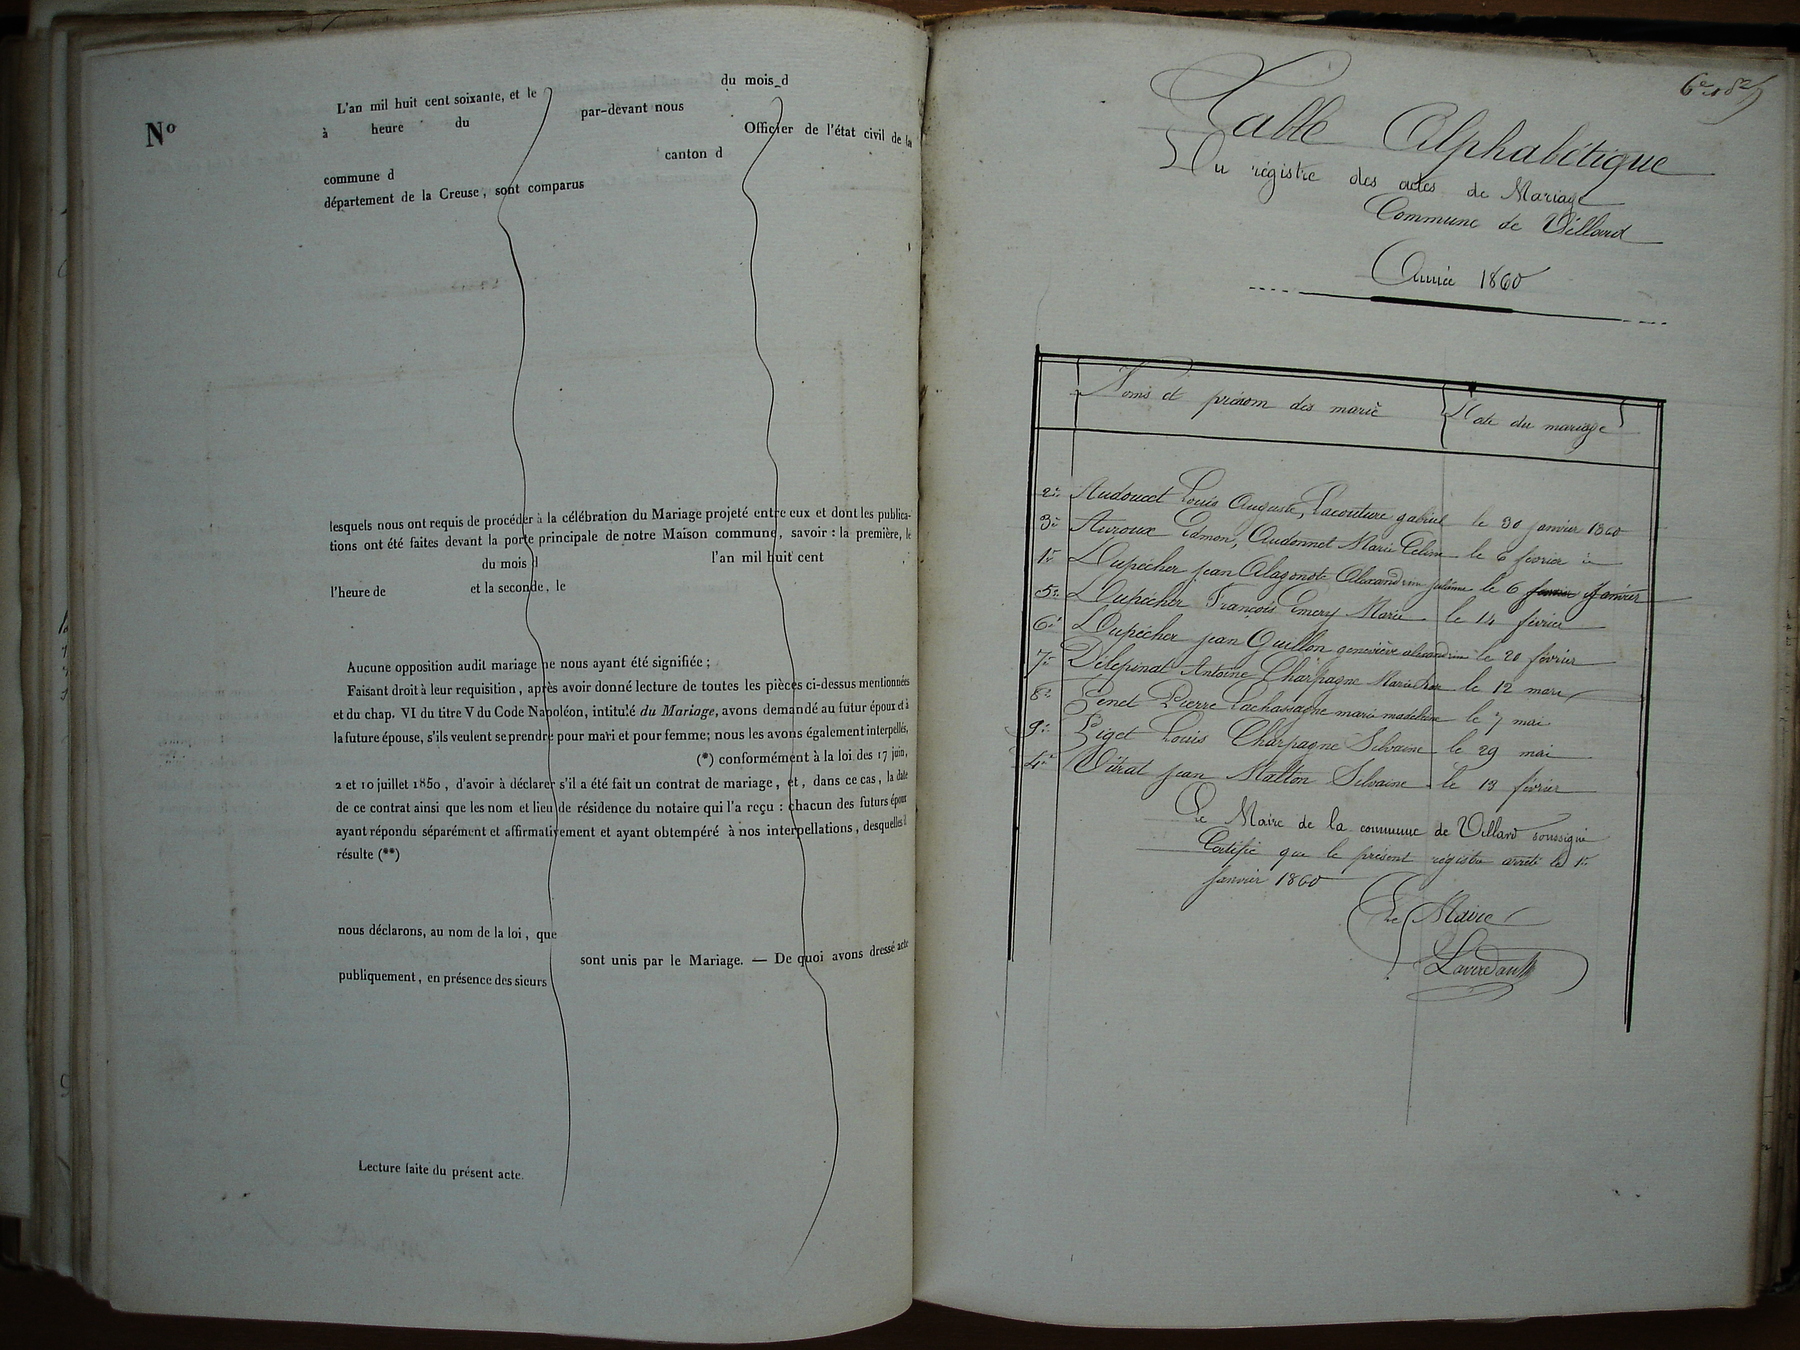 L'an mil huit cent soixante, et le du mois d
Nº à heure du par-devant nous
Officier de l'état civil de la
commune d canton d
département de la Creuse, sont comparus
lesquels nous ont requis de procéder à la célébration du Mariage projeté entre eux et dont les publica-
tions ont été faites devant la porte principale de notre Maison commune, savoir : la première, le
du mois d l'an mil huit cent
l'heure de et la seconde, le
Aucune opposition audit mariage ne nous ayant été signifiée ;
Faisant droit à leur requisition, après avoir donné lecture de toutes les pièces ci-dessus mentionnées
et du chap. VI du titre V du Code Napoléon, intitulé du Mariage, avons demandé au futur époux et à
la future épouse, s'ils veulent se prendre pour mari et pour femme; nous les avons également interpellés,
(*) conformément à la loi des 17 juin,
2 et 10 juillet 1850, d'avoir à déclarer s'il a été fait un contrat de mariage, et, dans ce cas, la date
de ce contrat ainsi que les nom et lieu de résidence du notaire qui l'a reçu : chacun des futurs époux
ayant répondu séparément et affirmativement et ayant obtempéré à nos interpellations, desquelles il
résulte (**)
nous déclarons, au nom de la loi, que
sont unis par le Mariage. — De quoi avons dressé acte
publiquement, en présence des sieurs
Lecture faite du présent acte.
Table Alphabétique
Du régistre des actes de Mariage
Commune de Villard
Année 1860
Noms et prénom des marié Date du mariage
2e Audoucet Louis Auguste, Lacouture gabriel le 30 janvier 1860
3e Auroux Edmon, Audonnet Marie Celine le 6 février
1er Dupêcher jean Alagonot Alexandrine julienne le 6 Janvier
5e Dupêcher François Emery Marie le 14 février
6e Dupêcher jean Quillon geneviève alexandrine le 20 février
7e Delepinat Antoine Charpagne Marie le 12 mars
8e Genet Pierre Lachassagne marie madeleine le 7 mai
9e Piget Louis Charpagne Silvaine le 29 mai
4e Vérat jean Matton Silvaine le 13 février
Le Maire de la commune de Villard soussigné
Certifie que le présent régistre arrêté le 1er
janvier 1860
Le Maire